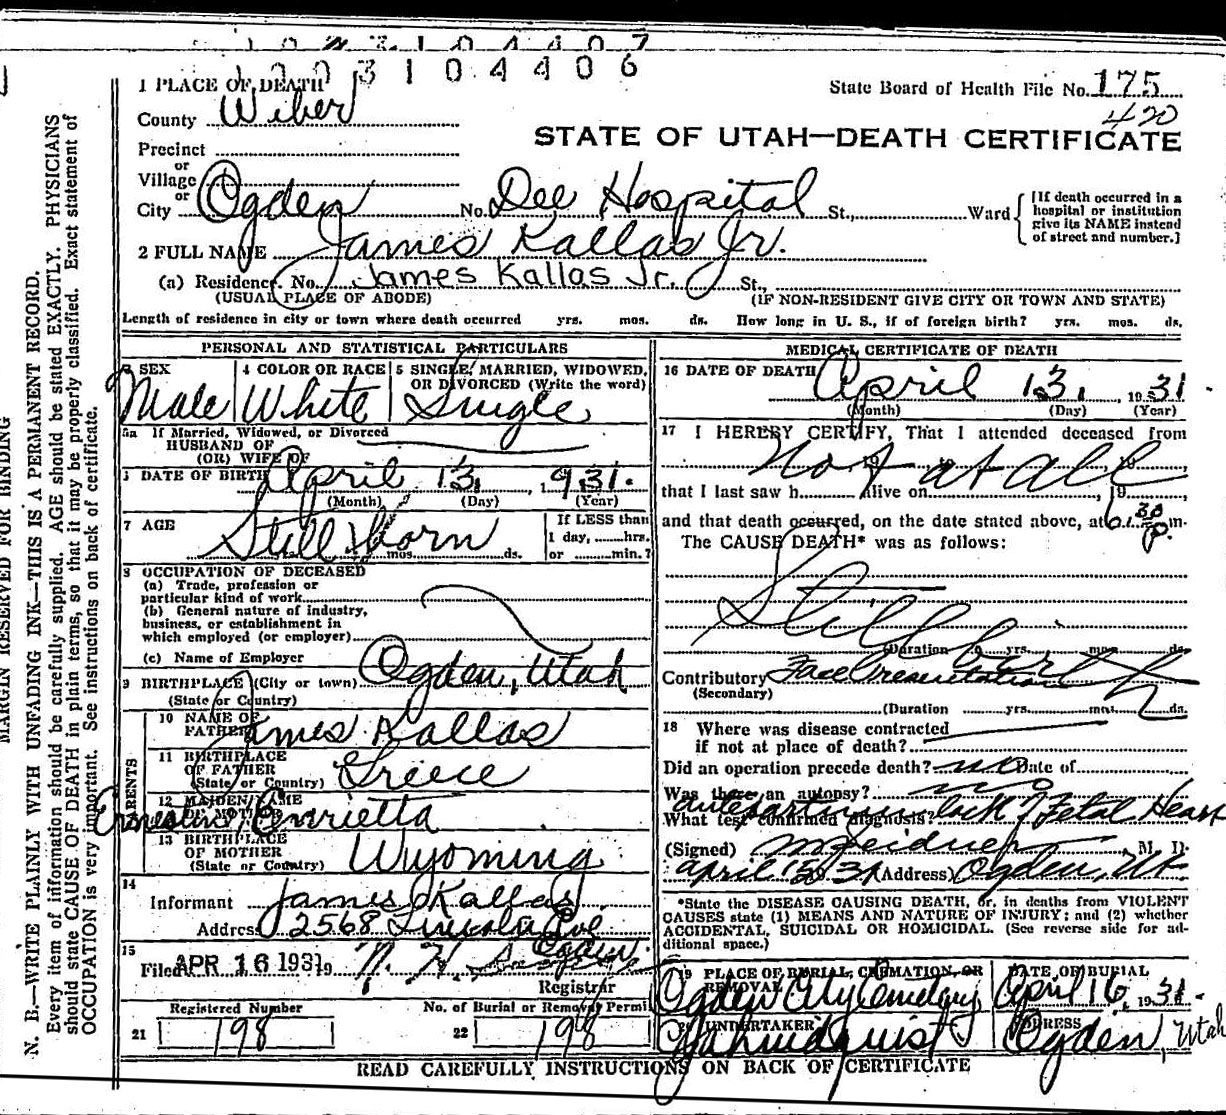 1003104406
1 PLACE OF DEATH
State Board of Health File No. 175
County Wiber
420
STATE OF UTAH—DEATH CERTIFICATE
Precinct
or
Village
or
City Ogden No. Dee Hospital St., Ward
[If death occurred in a
hospital or institution
give its NAME instead
of street and number.]
2 FULL NAME James Kallas Jr.
(a) Residence. No. James Kallas Jr. St.,
(USUAL PLACE OF ABODE) (IF NON-RESIDENT GIVE CITY OR TOWN AND STATE)
Length of residence in city or town where death occurred yrs. mos. ds. How long in U. S., if of foreign birth? yrs. mos. ds.
PERSONAL AND STATISTICAL PARTICULARS
3 SEX 4 COLOR OR RACE 5 SINGLE, MARRIED, WIDOWED,
OR DIVORCED (Write the word)
Male White Single
5a If Married, Widowed, or Divorced
HUSBAND OF
(OR) WIFE OF
6 DATE OF BIRTH April 13, 1931.
(Month) (Day) (Year)
7 AGE If LESS than
Still born 1 day, hrs.
yrs. mos. ds. or min.?
8 OCCUPATION OF DECEASED
(a) Trade, profession or
particular kind of work
(b) General nature of industry,
business, or establishment in
which employed (or employer)
(c) Name of Employer
9 BIRTHPLACE (City or town) Ogden, Utah
(State or Country)
PARENTS
10 NAME OF
FATHER James Kallas
11 BIRTHPLACE
OF FATHER
(State or Country) Greece
12 MAIDEN NAME
OF MOTHER Enrietta
13 BIRTHPLACE
OF MOTHER
(State or Country) Wyoming
14
Informant James Kallas
Address 2568 Lincoln Ave
Ogden
15
Filed APR 16 1931 19
Registrar
Registered Number No. of Burial or Removal Permit
21 198 22 198
MEDICAL CERTIFICATE OF DEATH
16 DATE OF DEATH April 13, 1931.
(Month) (Day) (Year)
17 I HEREBY CERTIFY, That I attended deceased from
not at all
that I last saw h alive on , 19 ,
and that death occurred, on the date stated above, at 30 P. m.
The CAUSE DEATH* was as follows:
Still birth
(Duration yrs. mos. ds.
Contributory Face Presentation
(Secondary)
(Duration yrs. mos. ds.
18 Where was disease contracted
if not at place of death?
Did an operation precede death? no Date of
Was there an autopsy? no
What test confirmed diagnosis? antepartum lack of Fetal Heart
(Signed) M. D.
April 15 1931 (Address) Ogden, Ut.
*State the DISEASE CAUSING DEATH, or, in deaths from VIOLENT
CAUSES state (1) MEANS AND NATURE OF INJURY; and (2) whether
ACCIDENTAL, SUICIDAL OR HOMICIDAL. (See reverse side for ad-
ditional space.)
19 PLACE OF BURIAL, CREMATION, OR DATE OF BURIAL
REMOVAL
Ogden City Cemetary April 16, 1931.
20 UNDERTAKER ADDRESS
Ogden, Utah
READ CAREFULLY INSTRUCTIONS ON BACK OF CERTIFICATE
MARGIN RESERVED FOR BINDING
N. B.—WRITE PLAINLY WITH UNFADING INK—THIS IS A PERMANENT RECORD.
Every item of information should be carefully supplied. AGE should be stated EXACTLY. PHYSICIANS
should state CAUSE OF DEATH in plain terms, so that it may be properly classified. Exact statement of
OCCUPATION is very important. See instructions on back of certificate.